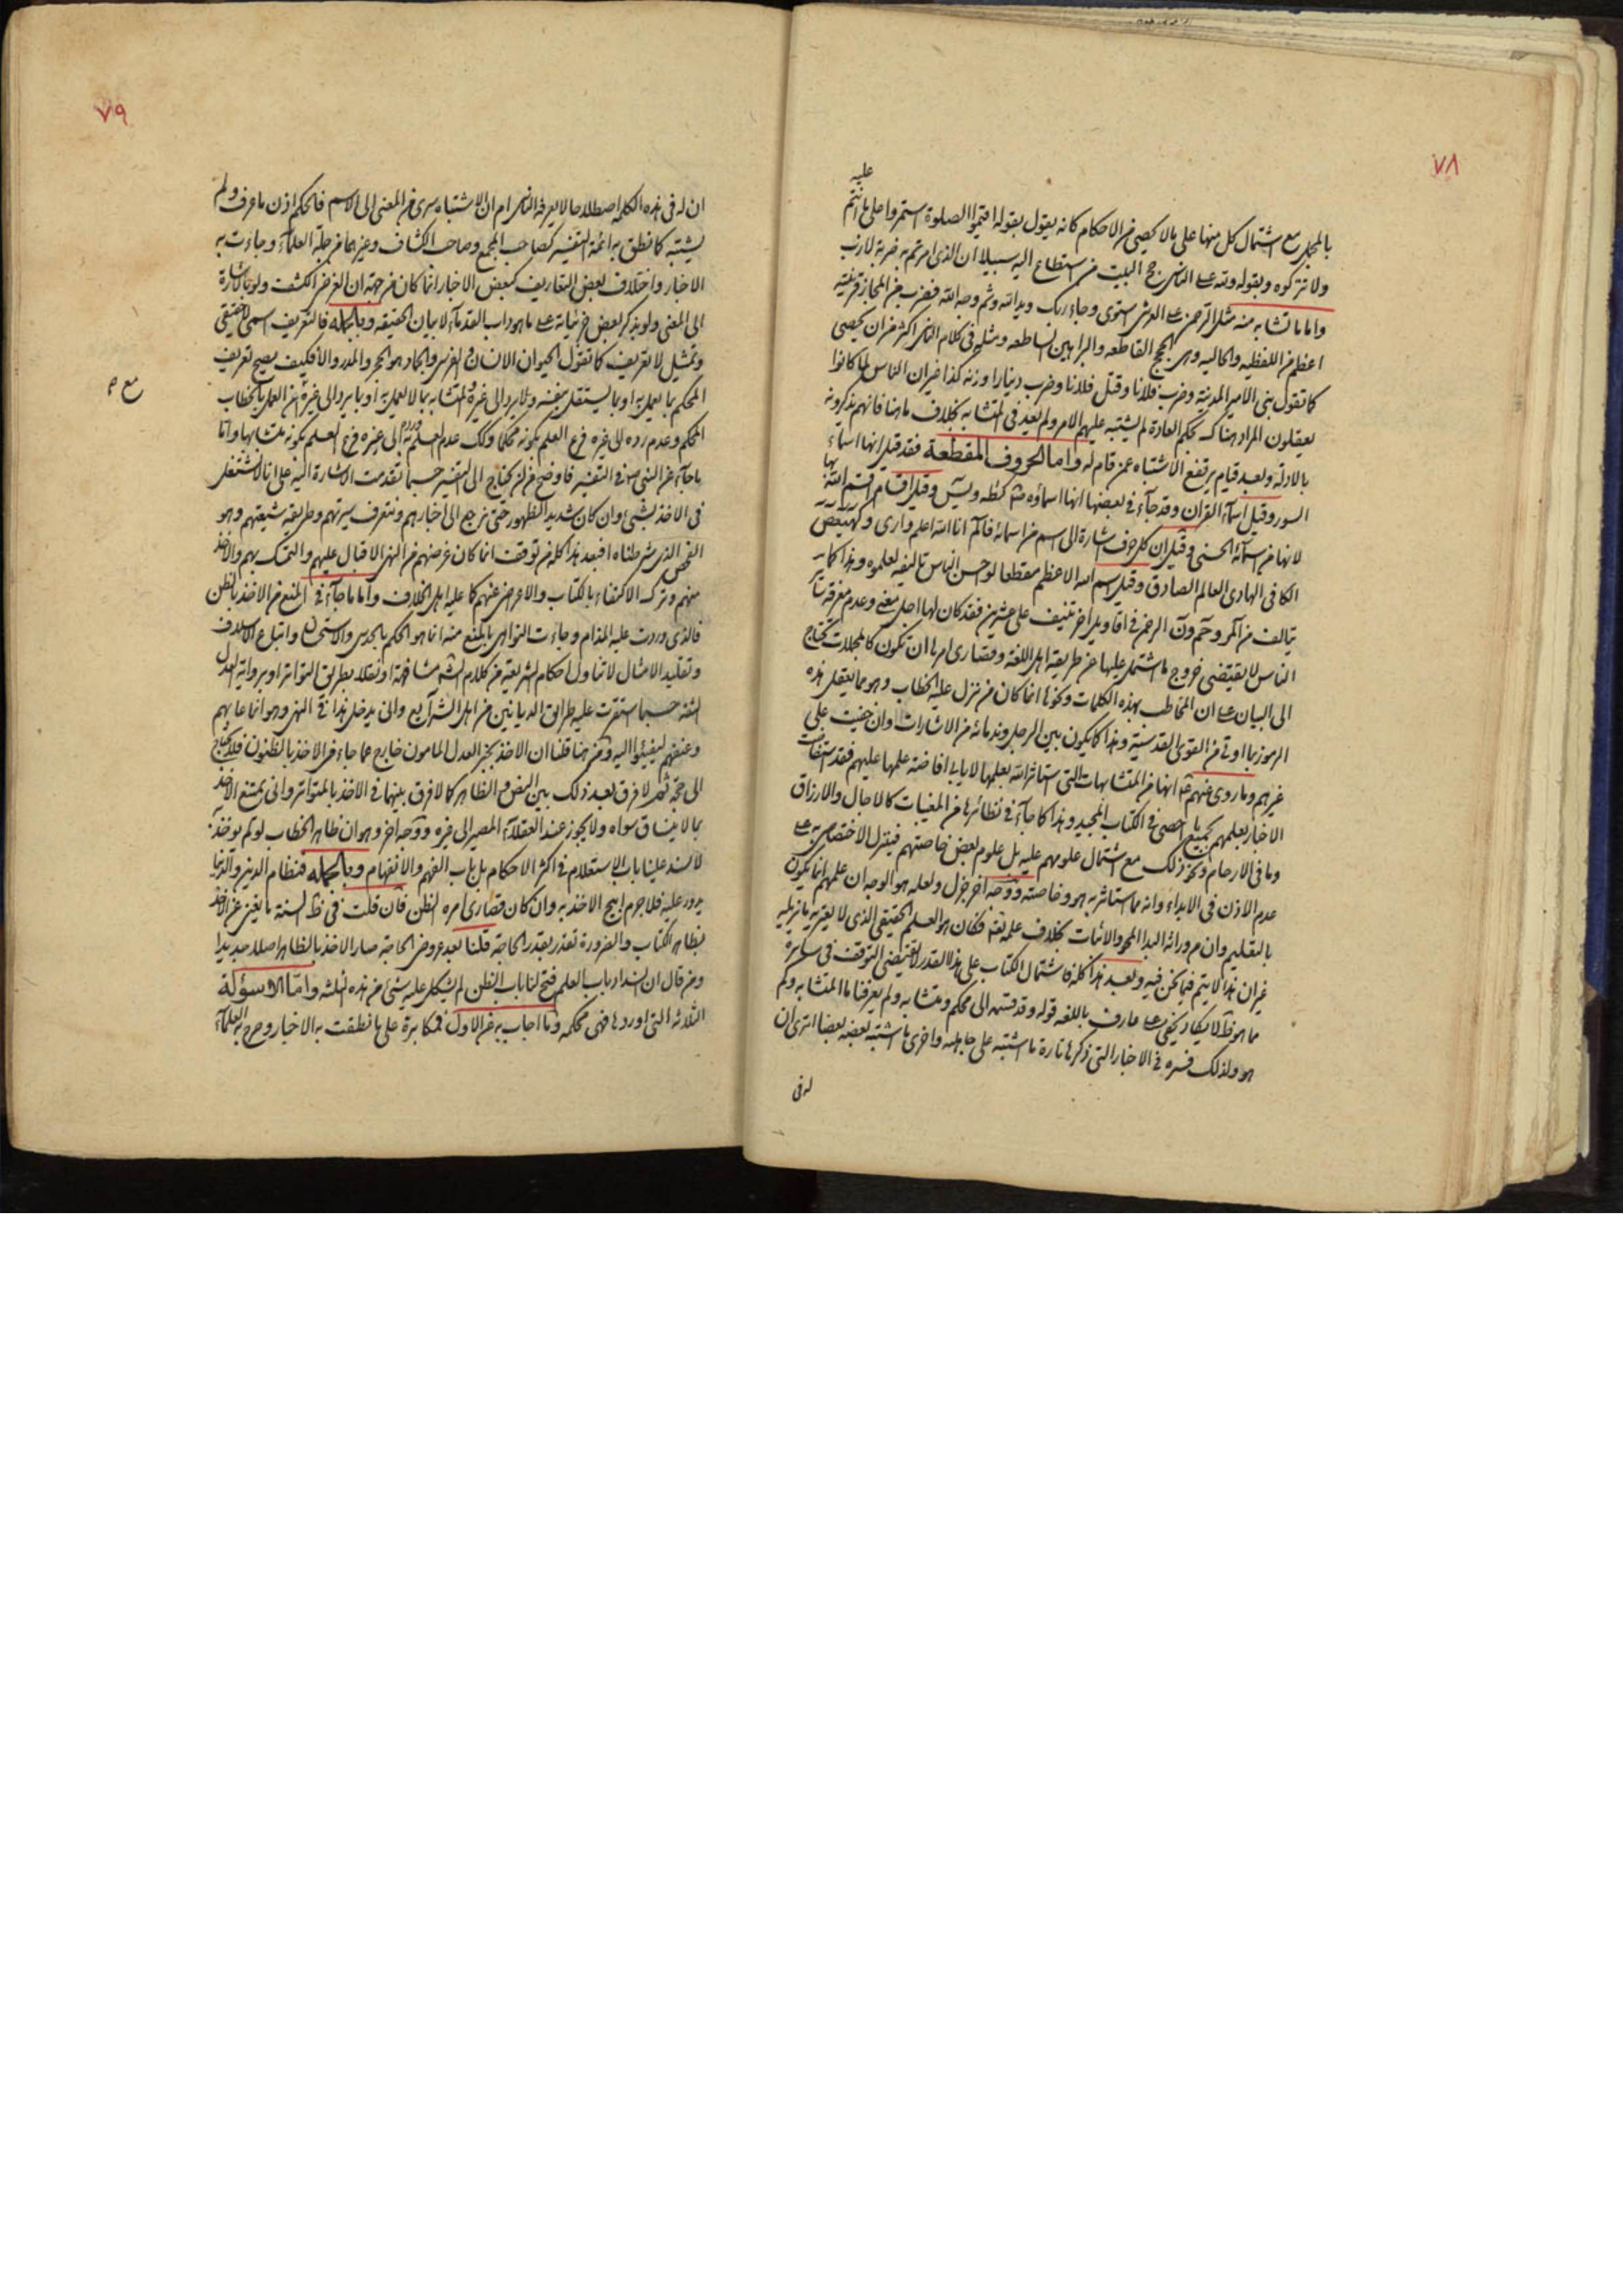 ٧٨
عليه
بالمجمل مع اشتمال كل منها على ما لا يحصى من الاحكام كانه يقول بقوله اقيموا الصلوة استمروا على ما انتم
ولا تتركوه وبقوله ولله على الناس حج البيت من استطاع اليه سبيلا ان الذى امرتم به ضربة لازب
واما ما تشابه منه مثل الرحمن على العرش استوى وجاء ربك ويد الله وثم وجه الله فضرب من المجاز قرينته
اعظم من اللفظيه والحاليه وهى الحجج القاطعه والبراهين الساطعه ومثله فى كلام الناس اكثر من ان يحصى
كما تقول بنى الامير المدينة وضرب فلانا وقتل فلانا وضرب دينارا وزنه كذا غير ان الناس لما كانوا
يعقلون المراد هناك بحكم العادة لم يشتبه عليهم الامر ولم يعد فى المتشابه بخلاف ما هنا فانهم يذكرونه
بالادلة وبعد قيام يرتفع الاشتباه عمن قام له واما الحروف المقطعة فقد قيل انها اسماء
السور وقيل اسماء القران وقد جاء فى بعضها انها اسماؤه كطه ويس وقيل اقسام اقسم الله بها
لانها من اسمائه الحسنى وقيل ان كل حرف اشارة الى اسم من اسمائه فالم انا الله اعلم وارى وكهيعص
الكافى الهادى العالم الصادق وقيل اسم الله الاعظم مقطعا لو احسن الناس تاليفه لعلموه وهذا كما
يتالف من آلمر وحم ون الرحمن فى اقاويل اخر تنيف على عشرين فقد كان لها اجل معنى وعدم معرفة
الناس لا يقتضى خروج ما اشتمل عليها عن طريقة اهل اللغة وقصارى امرها ان تكون كالمجملات تحتاج
الى البيان على ان المخاطب بهذه الكلمات ونحوها انما كان من نزل عليه الخطاب وهو مما يعقل هذه
الرموز بما اوتى من القوى القدسية وهذا كما يكون بين الرجل وندمائه من الاشارات وان خفيت على
غيرهم وما روى عنهم انها من المتشابهات التى استاثر الله بعلمها لا يابى افاضة علمها عليهم فقد استفاضت
الاخبار بعلمهم بجميع ما احصى فى الكتاب المجيد وهذا كما جاء فى نظائرها من المغيبات كالاجال والارزاق
وما فى الارحام ونحو ذلك مع اشتمال علومهم عليه بل علوم بعض خاصتهم فينزل الاختصاص به على
عدم الاذن فى الابداء وانه مما استاثر به هو وخاصته ووجه اخر جزل ولعله هو الوجه ان علمهم انما يكون
بالتعليم وان من ورائه البدا المحو والاثبات بخلاف علمه تعالى فكان هو العلم الحقيقى الذى لا يعتريه ما يزيله
غير ان هذا لا يتم فيما نحن فيه وبعد هذا كله فاشتمال الكتاب على هذا القدر لا يقتضى التوقف فى سائره
مما هو ظاهر لا يكاد يخفى على عارف باللغه قوله وقد قسمه الى محكم ومتشابه ولم يعرفنا ما المتشابه وكم
هو ولذلك فسره فى الاخبار التى ذكرها تارة ما اشتبه على جاهله واخرى ما اشتبه بعضه بعضا اترى ان
له فى
٧٩
ان له فى هذه الكلمه اصطلاحا لا يعرفه الناس ام ان الاشتباه سرى من المعنى الى الاسم فالمحكم اذن ما عرف ولم
يشتبه كما نطق به ائمة التفسير كصاحب المجمع وصاحب الكشاف وغيرهما من جلة العلماء وجاءت به
الاخبار واختلاف بعض التعاريف كبعض الاخبار انما كان من جهة ان الغرض الكشف ولو باشارة
الى المعنى ولو بذكر بعض جزئياته على ما هو داب القدماء لا بيان الحقيقه وبالجمله فالتعريف اسمى لا حقيقى
وتمثيل لا تعريف كما تقول الحيوان الانسان والفرس والجماد هو الحجر والمدر والا فكيف يصح تعريف
المحكم بما يعمل به او بما يستقل بنفسه ولا يرد الى غيره والمتشابه بما لا يعمل به او بما يرد الى غيره مع ان العمل بالخطاب
مع م
المحكم وعدم رده الى غيره فرع العلم بكونه محكما وكذلك عدم العمل به ورده الى غيره فرع العلم بكونه متشابها واما
ما جاء عن النبى ص فى التفسير فاوضح من ان يحتاج الى التفسير حسبما تقدمت الاشارة اليه على انا لا نستقل
فى الاخذ بشئ وان كان شديد الظهور حتى نرجع الى اخبارهم ونتعرف سيرتهم وطريقة شيعتهم وهو
الفحص الذى شرطناه افبعد هذا كله من توقف انما كان غرضهم من النهى الاقبال عليهم والتمسك بهم والاخذ
منهم وترك الاكتفاء بالكتاب والاعراض عنهم كما عليه اهل الخلاف واما ما جاء فى المنع من الاخذ بالظن
فالذى وردت عليه المذام وجاءت النواهى بالمنع منه انما هو الحكم بالحدس والاستحسان واتباع الاسلاف
وتقليد الامثال لا تناول احكام الشريعة من كلام الشارع مشافهة او نقلا بطريق التواتر او برواية العدل
الثقه حسبما استقرت عليه طرائق الديانين من اهل الشرائع وانى يدخل هذا فى النهى وهو انما عابهم
وعنفهم ليفيئوا اليه ومن هنا قلنا ان الاخذ بخبر العدل المامون خارج عما جاء من الاخذ بالظنون فلا يحتاج
الى حجة ثم لا فرق بعد ذلك بين النص والظاهر كما لا فرق بينهما فى الاخذ بالمتواتر وانى يمتنع الاخذ
بما لا ينساق سواه ولا يجوز عند العقلاء المصير الى غيره ووجه اخر وهو ان ظاهر الخطاب لو لم يوخذ به
لانسد علينا باب الاستعلام فى اكثر الاحكام بل باب الفهم والافهام وبالجمله فنظام الدين والدنيا
يدور عليه فلا جرم ابيح الاخذ به وان كان قصارى امره الظن فان قلت فى ظاهر السنة ما يغنى عن الاخذ
بظاهر الكتاب والضرورة تقدر بقدر الحاجة قلنا بعد عروض الحاجة صار الاخذ بالظاهر اصلا جديدا
ومن قال ان انسداد باب العلم فتح لنا باب الظن لم يشكل عليه شئ من هذه الثلثه واما الاسولة
الثلاثه التى اوردها فهى محكمه وما اجاب به عن الاول فمكابرة على ما نطقت به الاخبار وصرح به العلماء